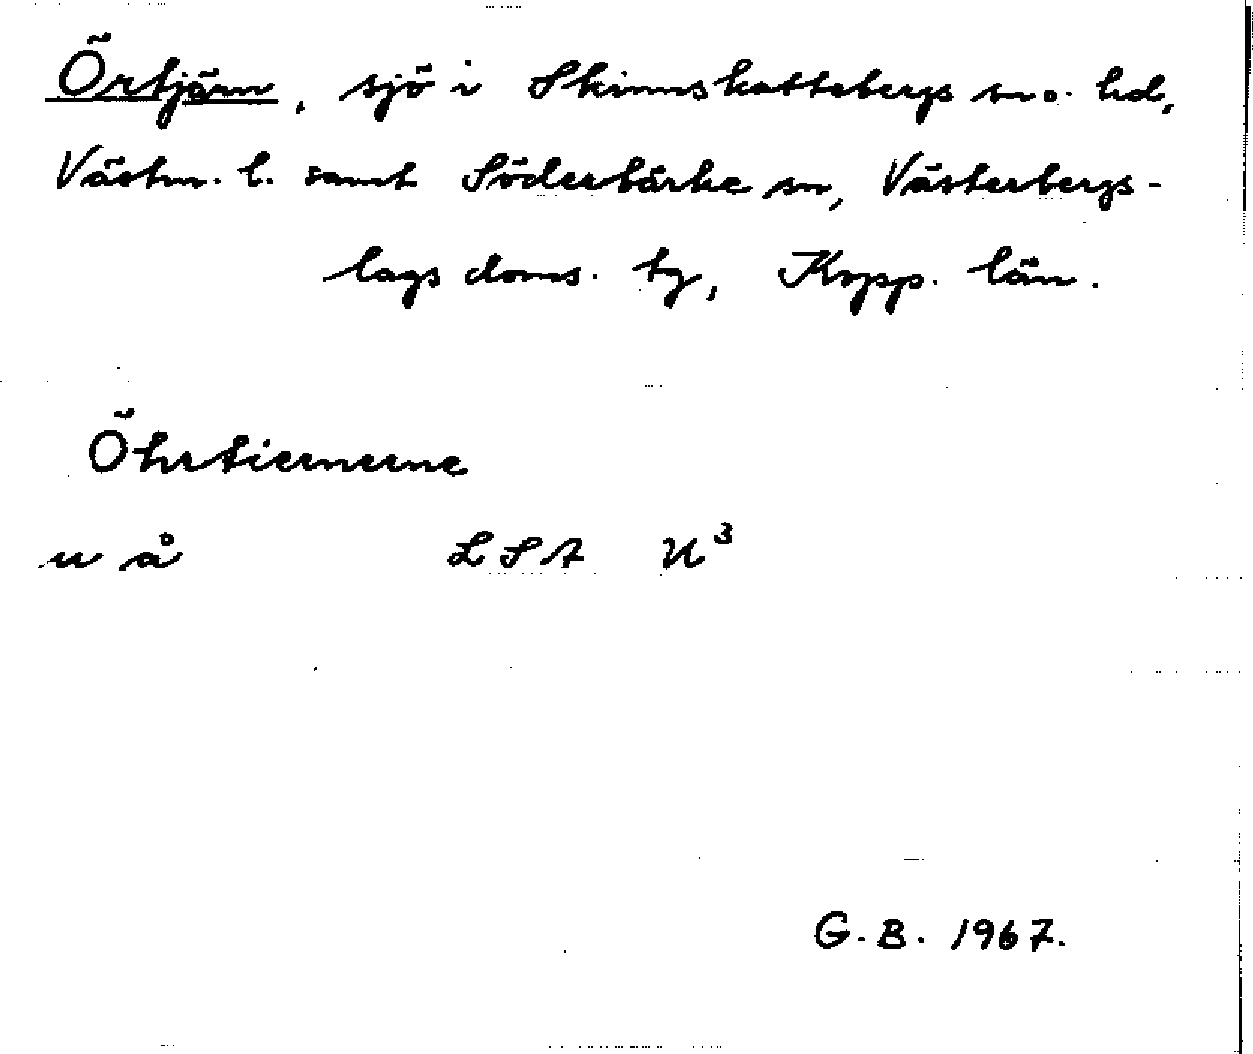 Örtjärn, sjö i Skinnskattebergs sn o. hd,
Västm. l. samt Söderbärke sn, Västerbergs-
lags doms. tg, Kopp. län.
Öhrtiernerne
u å LSA U³
G.B. 1967.